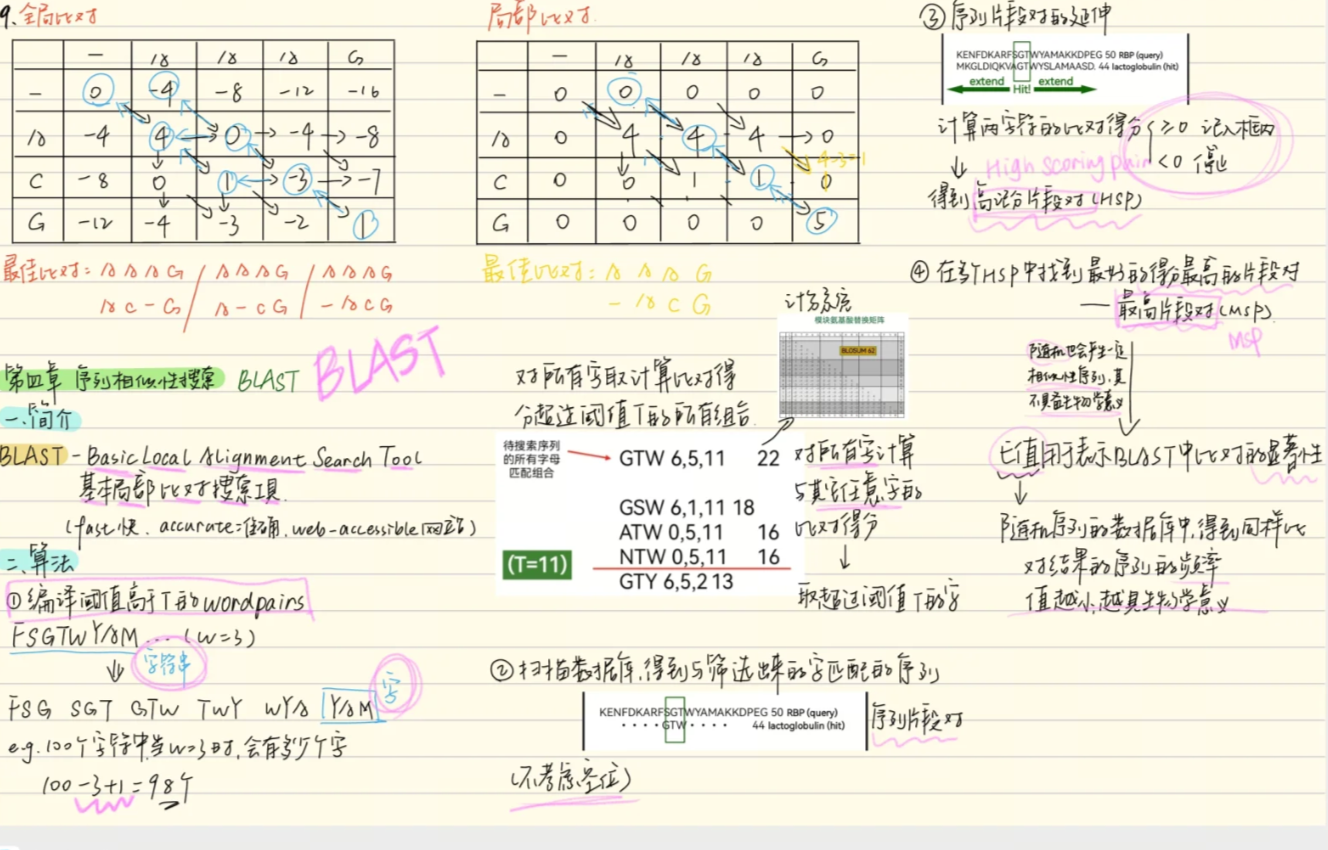 9.全局比对
— A A A G
— 0 -4 -8 -12 -16
A -4 4 0 -4 -8
C -8 0 1 -3 -7
G -12 -4 -3 -2 1
最佳比对: AAAG / AAAG / AAAG
AC-G / A-CG / -ACG
第四章 序列相似性搜索 BLAST BLAST
一、简介
BLAST - Basic Local Alignment Search Tool
基本局部比对搜索工具.
(fast快、accurate=准确,web-accessible网站)
二、算法
①编译阈值高于T的wordpairs
FSGTWYAM...(w=3)
字符串
FSG SGT GTW TWY WYA YAM 字
e.g.100个字符中,当w=3时,会有多少个字
100-3+1=98个
局部比对.
A A A G
— 0 0 0 0 0
A 0 4 4 4 0
4-3=1
C 0 0 1 1 0
G 0 0 0 0 5
最佳比对: A A A G
- A C G
计分系统
模块氨基酸替换矩阵
BLOSUM 62
对所有字取计算比对得
分超过阈值T的所有组合.
待搜索序列
的所有字母
匹配组合
GTW 6,5,11 22
GSW 6,1,11 18
ATW 0,5,11 16
NTW 0,5,11 16
GTY 6,5,2 13
(T=11)
对所有字计算
与其它任意字的
比对得分
取超过阈值T的字
②扫描数据库,得到与筛选出来的字匹配的序列
KENFDKARFSGTWYAMAKKDPEG 50 RBP (query)
· · · · ·GTW· · · · 44 lactoglobulin (hit)
序列片段对
(不考虑空位)
③序列片段对的延伸
KENFDKARFSGTWYAMAKKDPEG 50 RBP (query)
MKGLDIQKVAGTWYSLAMAASD. 44 lactoglobulin (hit)
extend Hit! extend
计算两字符的比对得分{≥0 记入框内
<0 停止
High scoring pair
得到高记分片段对(HSP)
④在多个HSP中找到最好的得分最高的片段对
— 最高片段对(MSP)
MSP
随机也会产生一定
相似性序列,其
不具备生物学意义
E值用于表示BLAST中比对的显著性
随机序列的数据库中,得到同样比
对结果的序列的频率
值越小,越具生物学意义